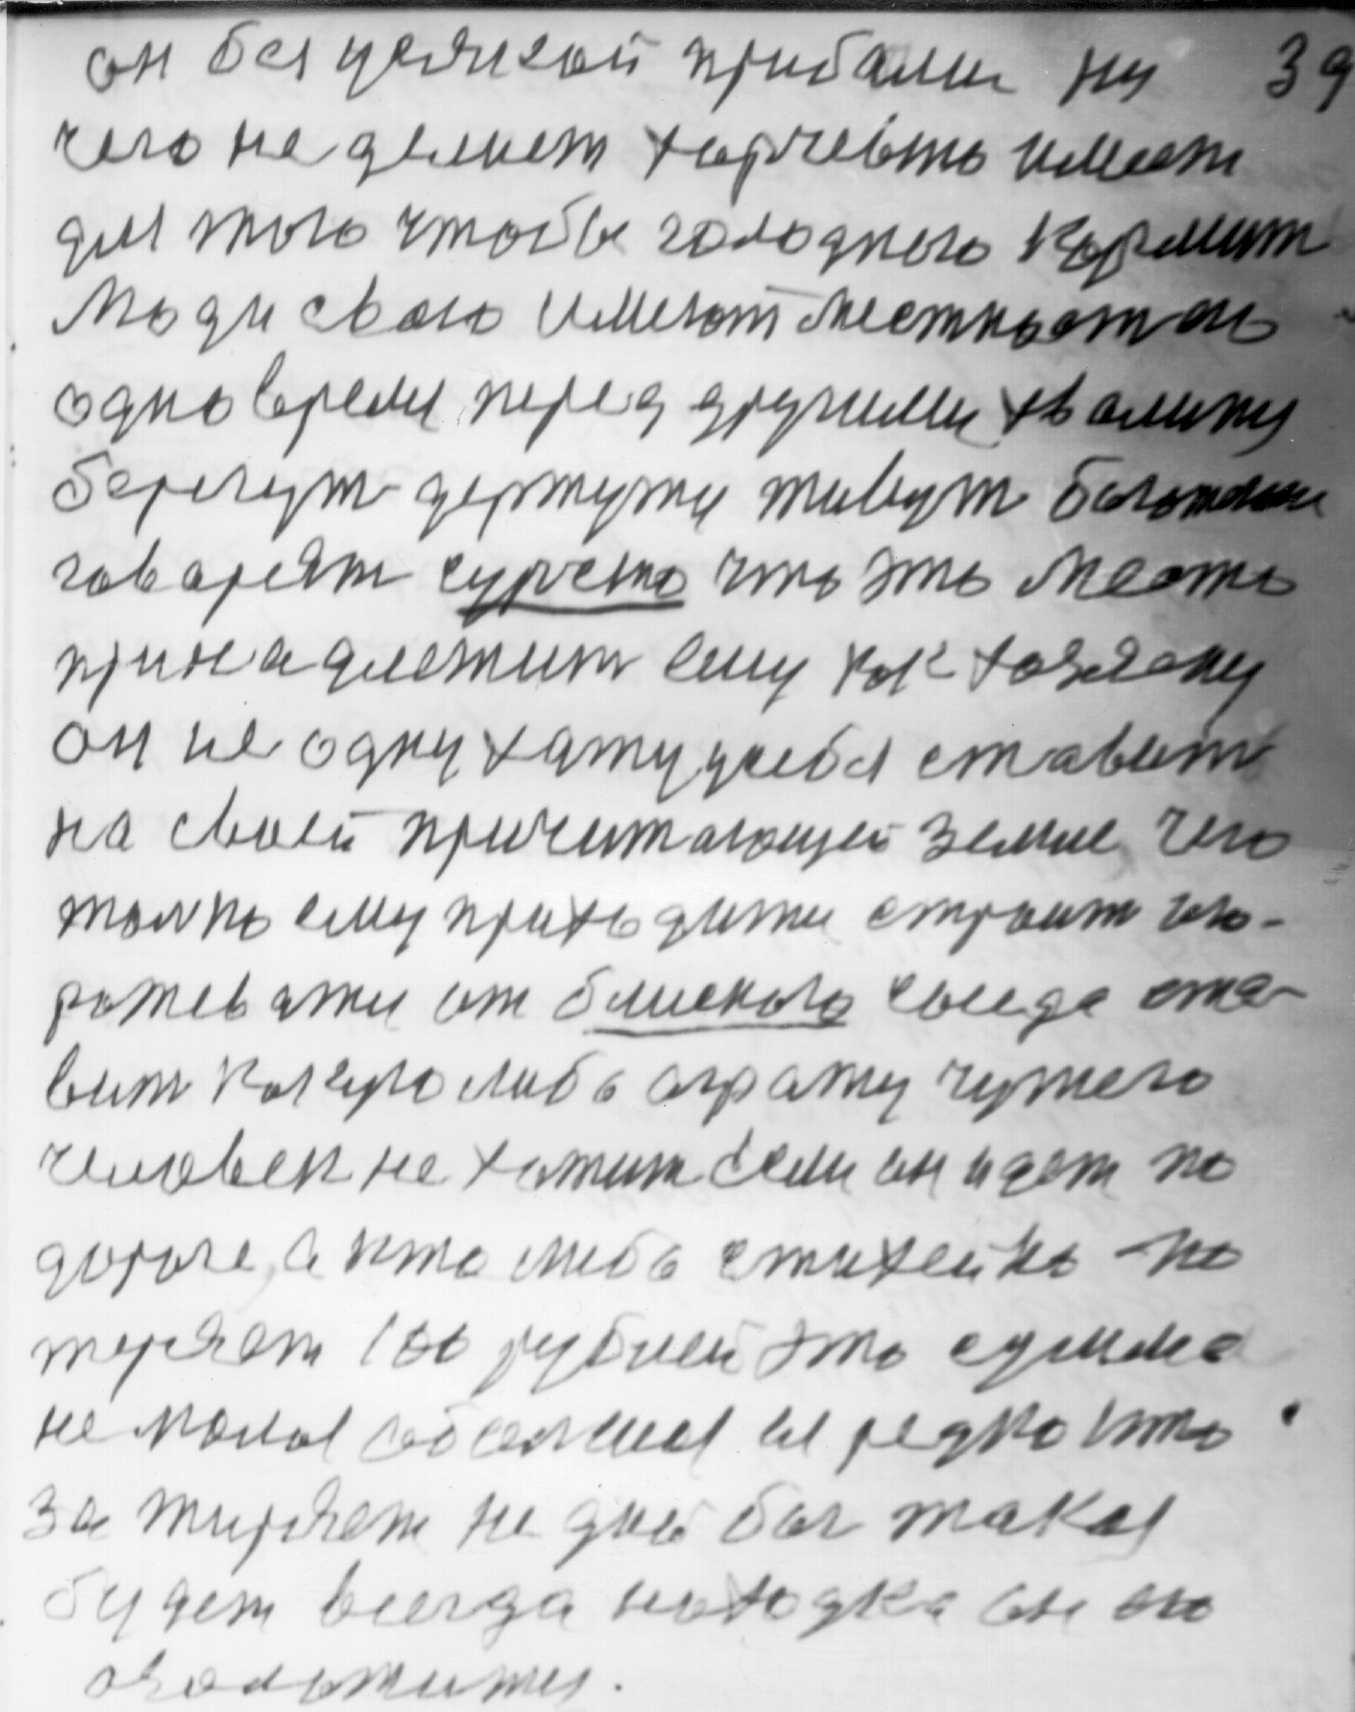 он без усяисой прибали ни 39
чего не делиет харчевьть имеет
для того чтобы голодного кормит
Люди свого имеют местность ось
одно время перед другими хвалису
берегут держутся живут богатои
говарят сурьезно что это место
принадлежит ему как хозяену
он не одну хату усебя ставит
на своей причитающей земле чего
только ему приходится строит ого-
раживатся от близкого соседа ста-
вит какуюлибо аграту чужего
человек не хотит если он идет по
дороге, а ктолибо стихейно по
теряет 100 рублей это сумма
не малая собеленая ея редко кто
за тиряет не дай бог такая
будет всегда находка он ею